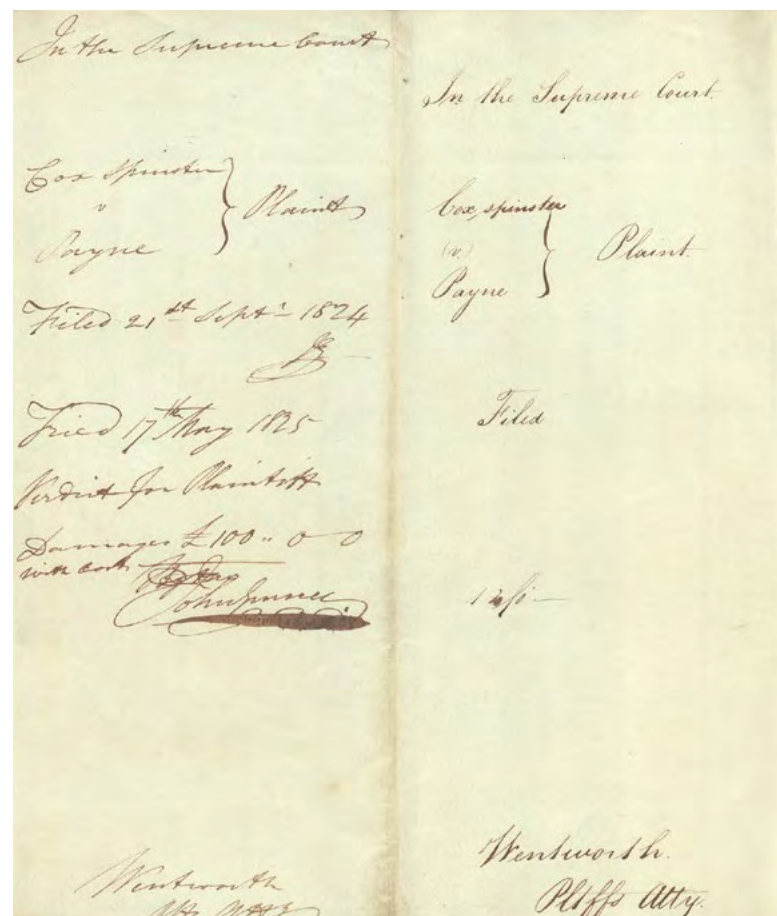 In the Supreme Court
Cox Spinster
v
Payne
Plaint
Filed 21st Septr 1824
Tried 17th May 1825
Verdict for Plaintiff
Damages £100 " 0 0
with cost
John
Wentworth
In the Supreme Court.
Cox, spinster
(v.)
Payne
Plaint.
Filed
Wentworth.
Pltffs Atty.